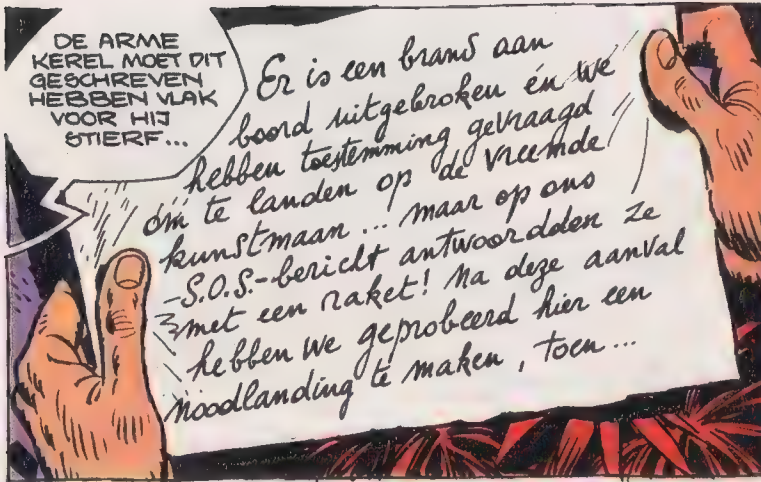 DE ARME
KEREL MOET DIT
GESCHREVEN
HEBBEN VLAK
VOOR HIJ
STIERF...
Er is een brand aan
boord uitgebroken én we
hebben toestemming gevraagd
óm te landen op de vreemde
kunstmaan ... maar op ons
S.O.S.-bericht antwoordden ze
met een raket! Na deze aanval
hebben we geprobeerd hier een
noodlanding te maken, toen ...